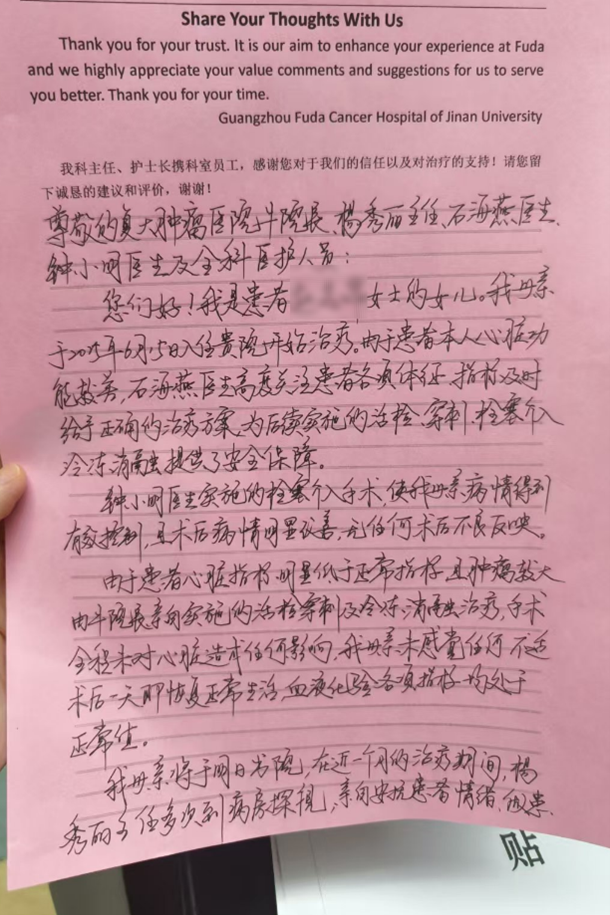 Share Your Thoughts With Us
Thank you for your trust. It is our aim to enhance your experience at Fuda
and we highly appreciate your value comments and suggestions for us to serve
you better. Thank you for your time.
Guangzhou Fuda Cancer Hospital of Jinan University
我科主任、护士长携科室员工，感谢您对于我们的信任以及对治疗的支持！请您留
下诚恳的建议和评价，谢谢！
尊敬的复大肿瘤医院牛院长、杨秀丽主任、石海燕医生、
钟小明医生及全科医护人员：
您们好！我是患者 女士的女儿。我母亲
于2025年6月15日入住贵院开始治疗。由于患者本人心脏功
能较差，石海燕医生高度关注患者各项体征、指标及时
给予正确的治疗方案，为后续实施的活检、穿刺、栓塞介入
冷冻消融提供了安全保障。
钟小明医生实施的栓塞介入手术，使我母亲病情得到
有效控制，且术后病情明显改善，无任何术后不良反映。
由于患者心脏指标明显低于正常指标，且肿瘤较大
由牛院长亲自实施的活检穿刺及冷冻消融治疗，手术
全程未对心脏造成任何影响，我母亲未感觉任何不适
术后一天即恢复正常生活，血液化验各项指标均处于
正常值。
我母亲将于明日出院，在近一个月的治疗期间，杨
秀丽主任多次到病房探视，亲自安抚患者情绪，使患
贴